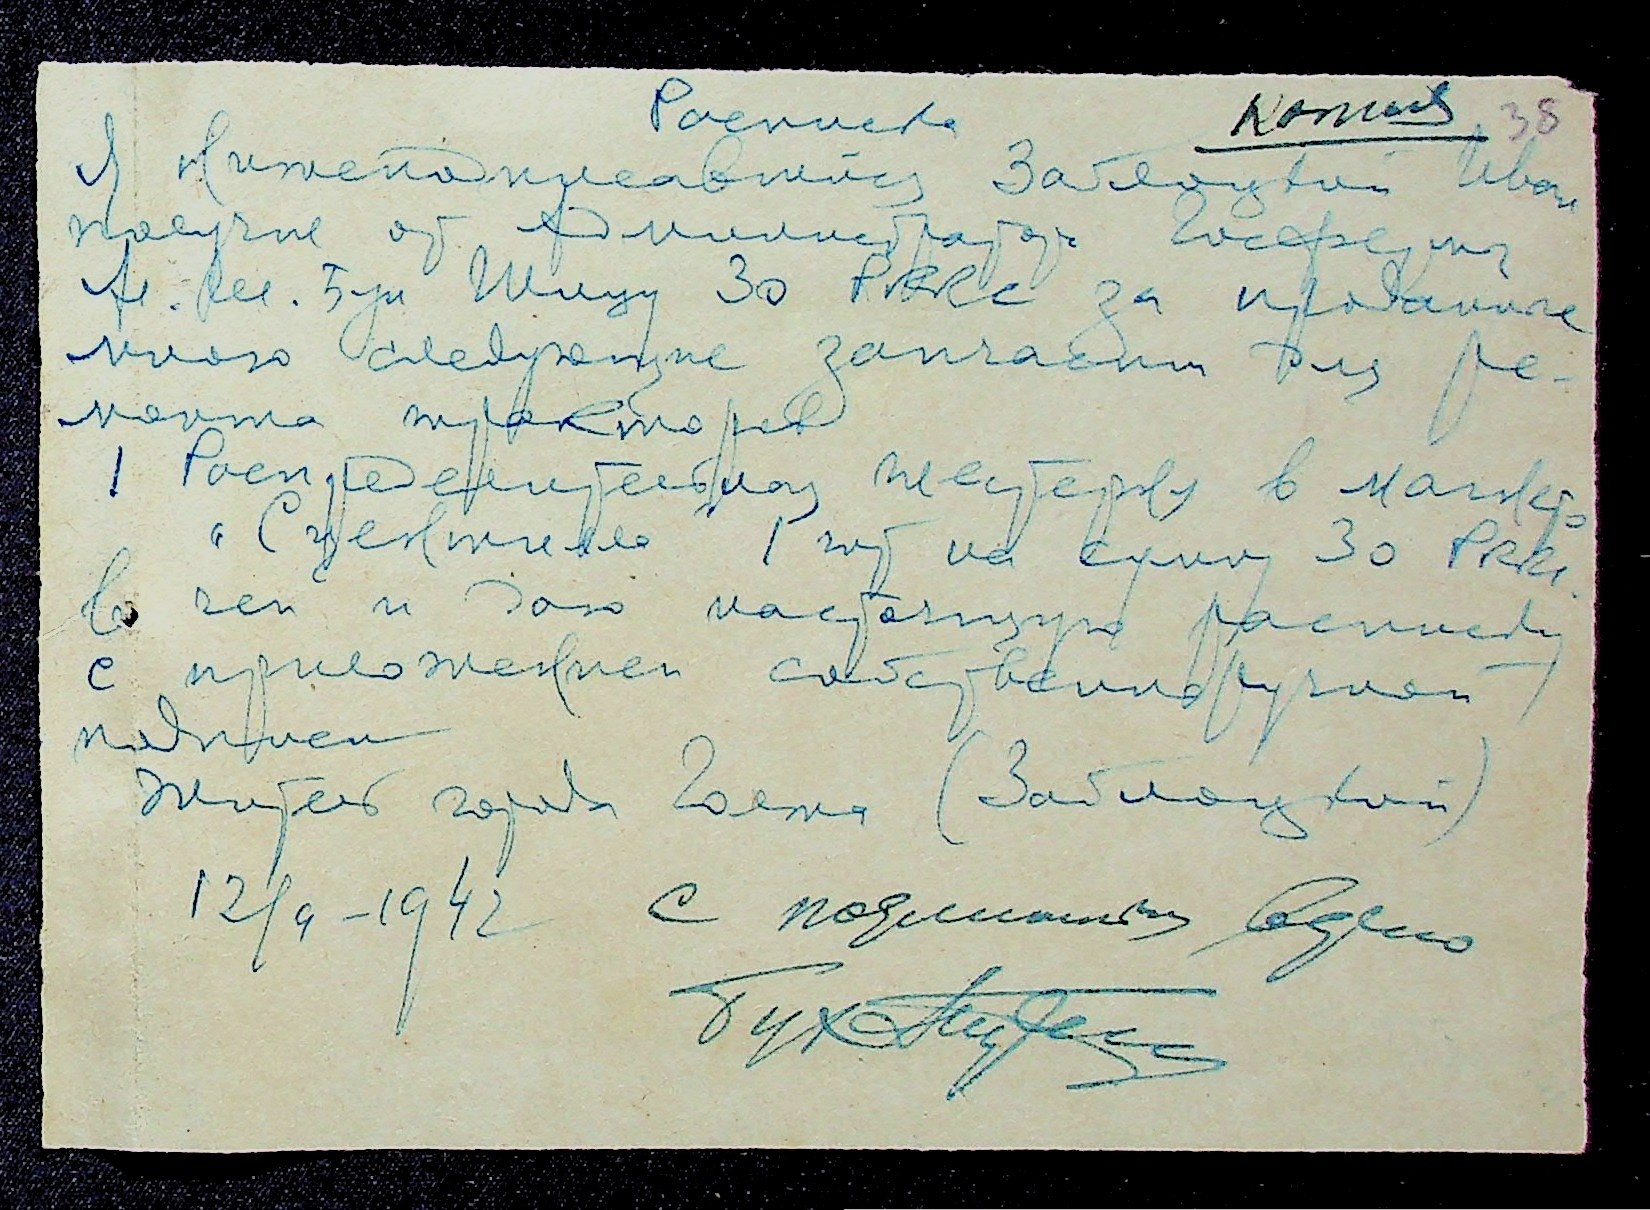 Расписка Копия 38
Я Нижеподписавшийся Заблоцкий Иван
получил от Администратора
30 за проданные
мною следующие запчасти для ре-
монта тракторов
1 Распределительная шестерня в
1 шт на сумму 30
В чем и даю настоящую расписку
с приложением собственноручной
подписи
Житель города (Заблоцкий)
12/9-1942 С подлинным верно
Бух